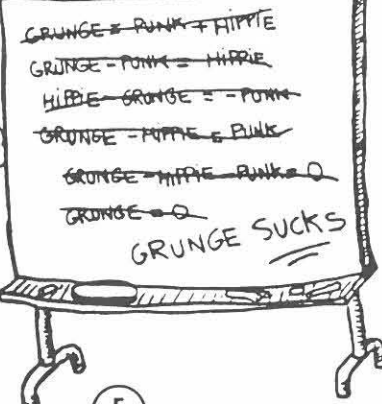 GRUNGE = PUNK + HIPPIE
GRUNGE - PUNK = HIPPIE
HIPPIE - GRUNGE = - PUNK
GRUNGE - HIPPIE = PUNK
GRUNGE - HIPPIE - PUNK = 0
GRUNGE = 0
GRUNGE SUCKS
5